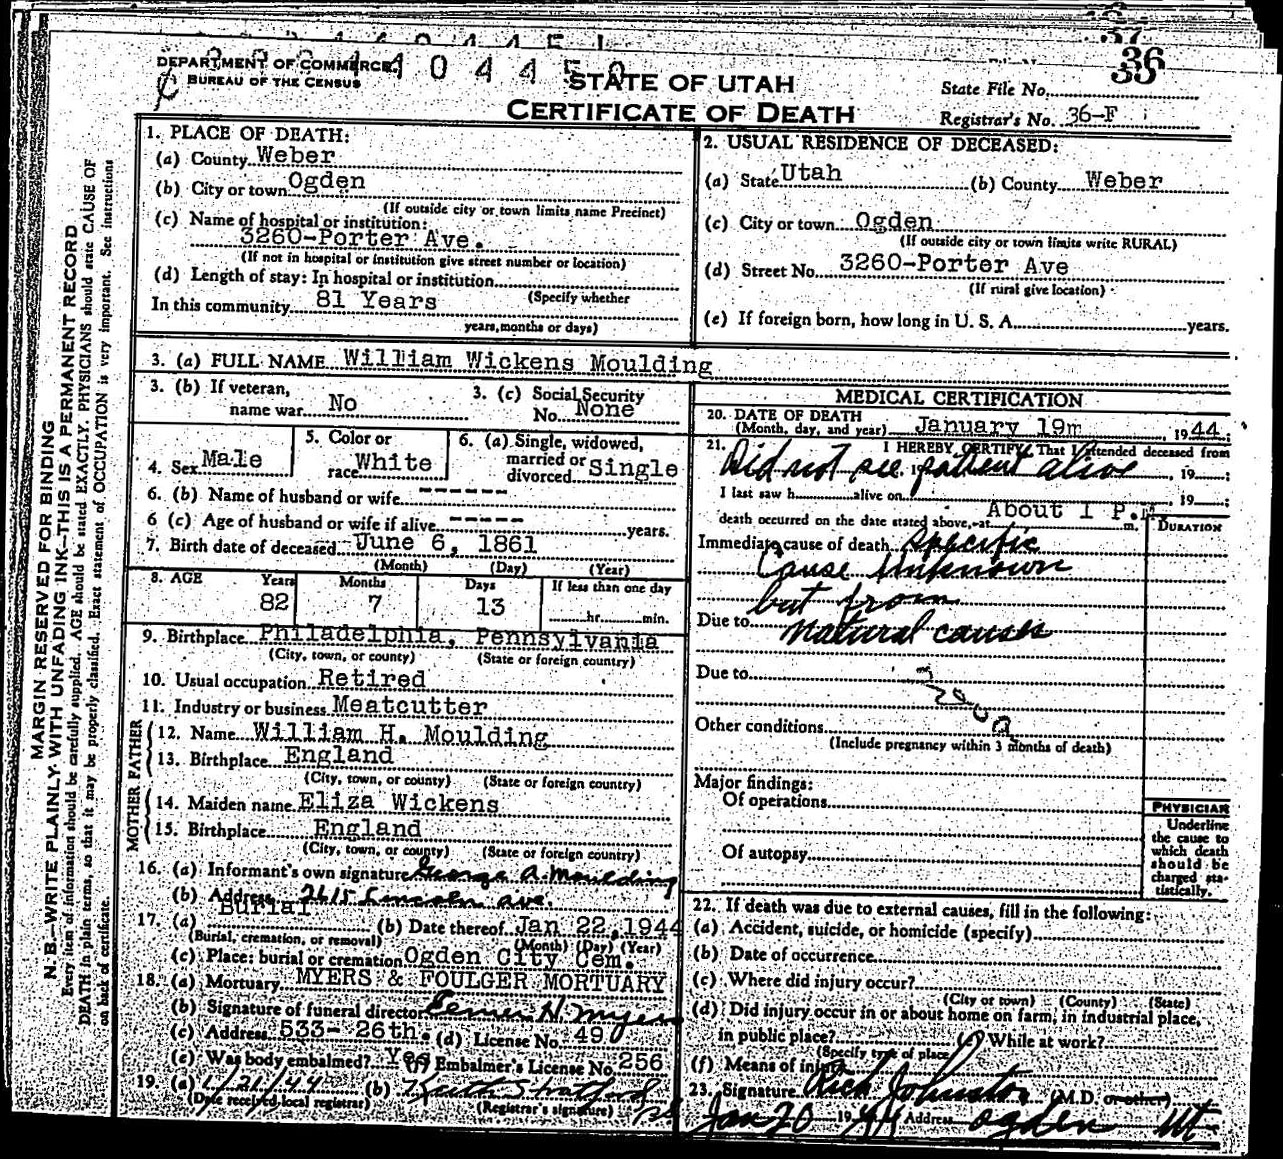 DEPARTMENT OF COMMERCE
BUREAU OF THE CENSUS
STATE OF UTAH
CERTIFICATE OF DEATH
36
State File No.
Registrar's No. 36-F
MARGIN RESERVED FOR BINDING
N. B.—WRITE PLAINLY, WITH UNFADING INK—THIS IS A PERMANENT RECORD
Every item of information should be carefully supplied. AGE should be stated EXACTLY. PHYSICIANS should state CAUSE OF
DEATH in plain terms, so that it may be properly classified. Exact statement of OCCUPATION is very important. See instructions
on back of certificate.
1. PLACE OF DEATH:
(a) County Weber
(b) City or town Ogden
(If outside city or town limits name Precinct)
(c) Name of hospital or institution:
3260-Porter Ave.
(If not in hospital or institution give street number or location)
(d) Length of stay: In hospital or institution
(Specify whether
In this community 81 Years
years, months or days)
2. USUAL RESIDENCE OF DECEASED:
(a) State Utah (b) County Weber
(c) City or town Ogden
(If outside city or town limits write RURAL)
(d) Street No. 3260-Porter Ave
(If rural give location)
(e) If foreign born, how long in U. S. A. years.
3. (a) FULL NAME William Wickens Moulding
3. (b) If veteran, name war No
3. (c) Social Security No. None
4. Sex Male
5. Color or race White
6. (a) Single, widowed, married or divorced Single
6. (b) Name of husband or wife ------
6 (c) Age of husband or wife if alive ----- years.
7. Birth date of deceased June 6, 1861
(Month) (Day) (Year)
8. AGE Years Months Days If less than one day
82 7 13 hr. min.
9. Birthplace Philadelphia, Pennsylvania
(City, town, or county) (State or foreign country)
10. Usual occupation Retired
11. Industry or business Meatcutter
FATHER
12. Name William H. Moulding
13. Birthplace England
(City, town, or county) (State or foreign country)
MOTHER
14. Maiden name Eliza Wickens
15. Birthplace England
(City, town, or county) (State or foreign country)
16. (a) Informant's own signature George A. Moulding
(b) Address 2615 Lincoln ave.
17. (a) Burial (b) Date thereof Jan 22, 1944
(Burial, cremation, or removal) (Month) (Day) (Year)
(c) Place: burial or cremation Ogden City Cem.
18. (a) Mortuary MYERS & FOULGER MORTUARY
(b) Signature of funeral director Elmer H. Myers
(c) Address 533- 26th. (d) License No. 490
(e) Was body embalmed? Yes (f) Embalmer's License No. 256
19. (a) 1/21/44 (b) Keith Stratford
(Date received local registrar) (Registrar's signature)
MEDICAL CERTIFICATION
20. DATE OF DEATH
(Month, day, and year) January 19m, 1944;
21. I HEREBY CERTIFY, That I attended deceased from
Did not see patient alive 19 , 19 ;
I last saw h alive on , 19 ;
About 1 P.
death occurred on the date stated above, at m. DURATION
Immediate cause of death Specific
Cause Unknown
but from
Due to natural causes
Due to
200a
Other conditions
(Include pregnancy within 3 months of death)
Major findings:
Of operations
Of autopsy
PHYSICIAN
Underline
the cause to
which death
should be
charged sta-
tistically.
22. If death was due to external causes, fill in the following:
(a) Accident, suicide, or homicide (specify)
(b) Date of occurrence
(c) Where did injury occur?
(City or town) (County) (State)
(d) Did injury occur in or about home on farm, in industrial place,
in public place? (e) While at work?
(Specify type of place)
(f) Means of injury
23. Signature Rich Johnston (M.D. or other)
Jan 20 1944 Address Ogden Ut